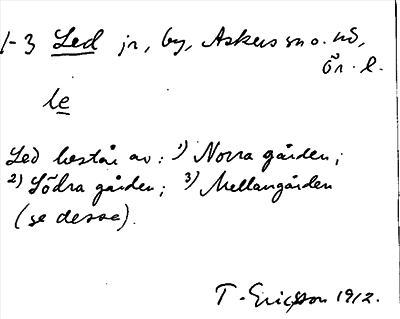 1-3 Led jr, by, Askers sn o. hd,
Ör. l.
le
Led består av: 1) Norra gården;
2) Södra gården; 3) Mellangården
(se dessa).
T. Ericsson 1912.